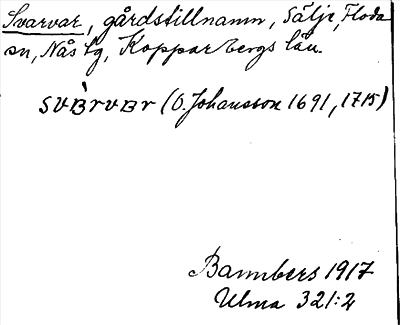 Svarvar, gårdstillnamn, Sälje, Floda
sn, Nås tg, Kopparbergs län.
svàrvar (O. Johansson 1691, 1715)
Bannbers 1917
Ulma 321:2